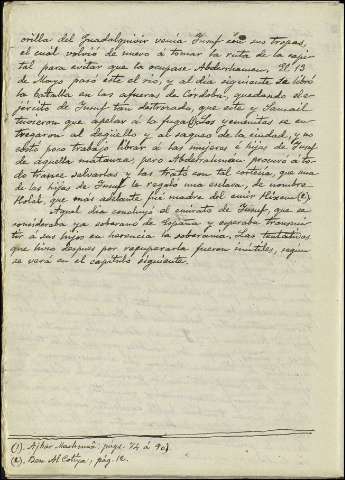 orilla del Guadalquivir venía Jusuf con sus tropas,
el cual volvió de nuevo á tomar la ruta de la capi-
tal para evitar que la ocupase Abderrhaman. El 13
de Mayo pasó este el río, y al día siguiente se libró
la batalla en las afueras de Córdoba, quedando el e-
jército de Jusuf tan destrozado, que este y Samail
tuvieron que apelar á la fuga(1). Los yemenitas se en-
tregaron al degüello y al saqueo de la ciudad, y no
costó poco trabajo librar á las mujeres é hijas de Jusuf
de aquella matanza, pero Abderrahman procuró á to-
do trance salvarlas y las trató con tal cortesía, que una
de las hijas de Jusuf le regaló una esclava, de nombre
Holal, que más adelante fué madre del emir Hixem(2).
Aquel día concluyó el emirato de Jusuf, que se
consideraba ya soberano de España y esperaba trasmi-
tir á sus hijos en herencia la soberanía. Las tentativas
que hizo después por recuperarla fueron inútiles, según
se verá en el capítulo siguiente.
(1). Ajbar Machmuâ: pags. 74 á 90.
(2). Ben Al Cotiya, pág. 12.